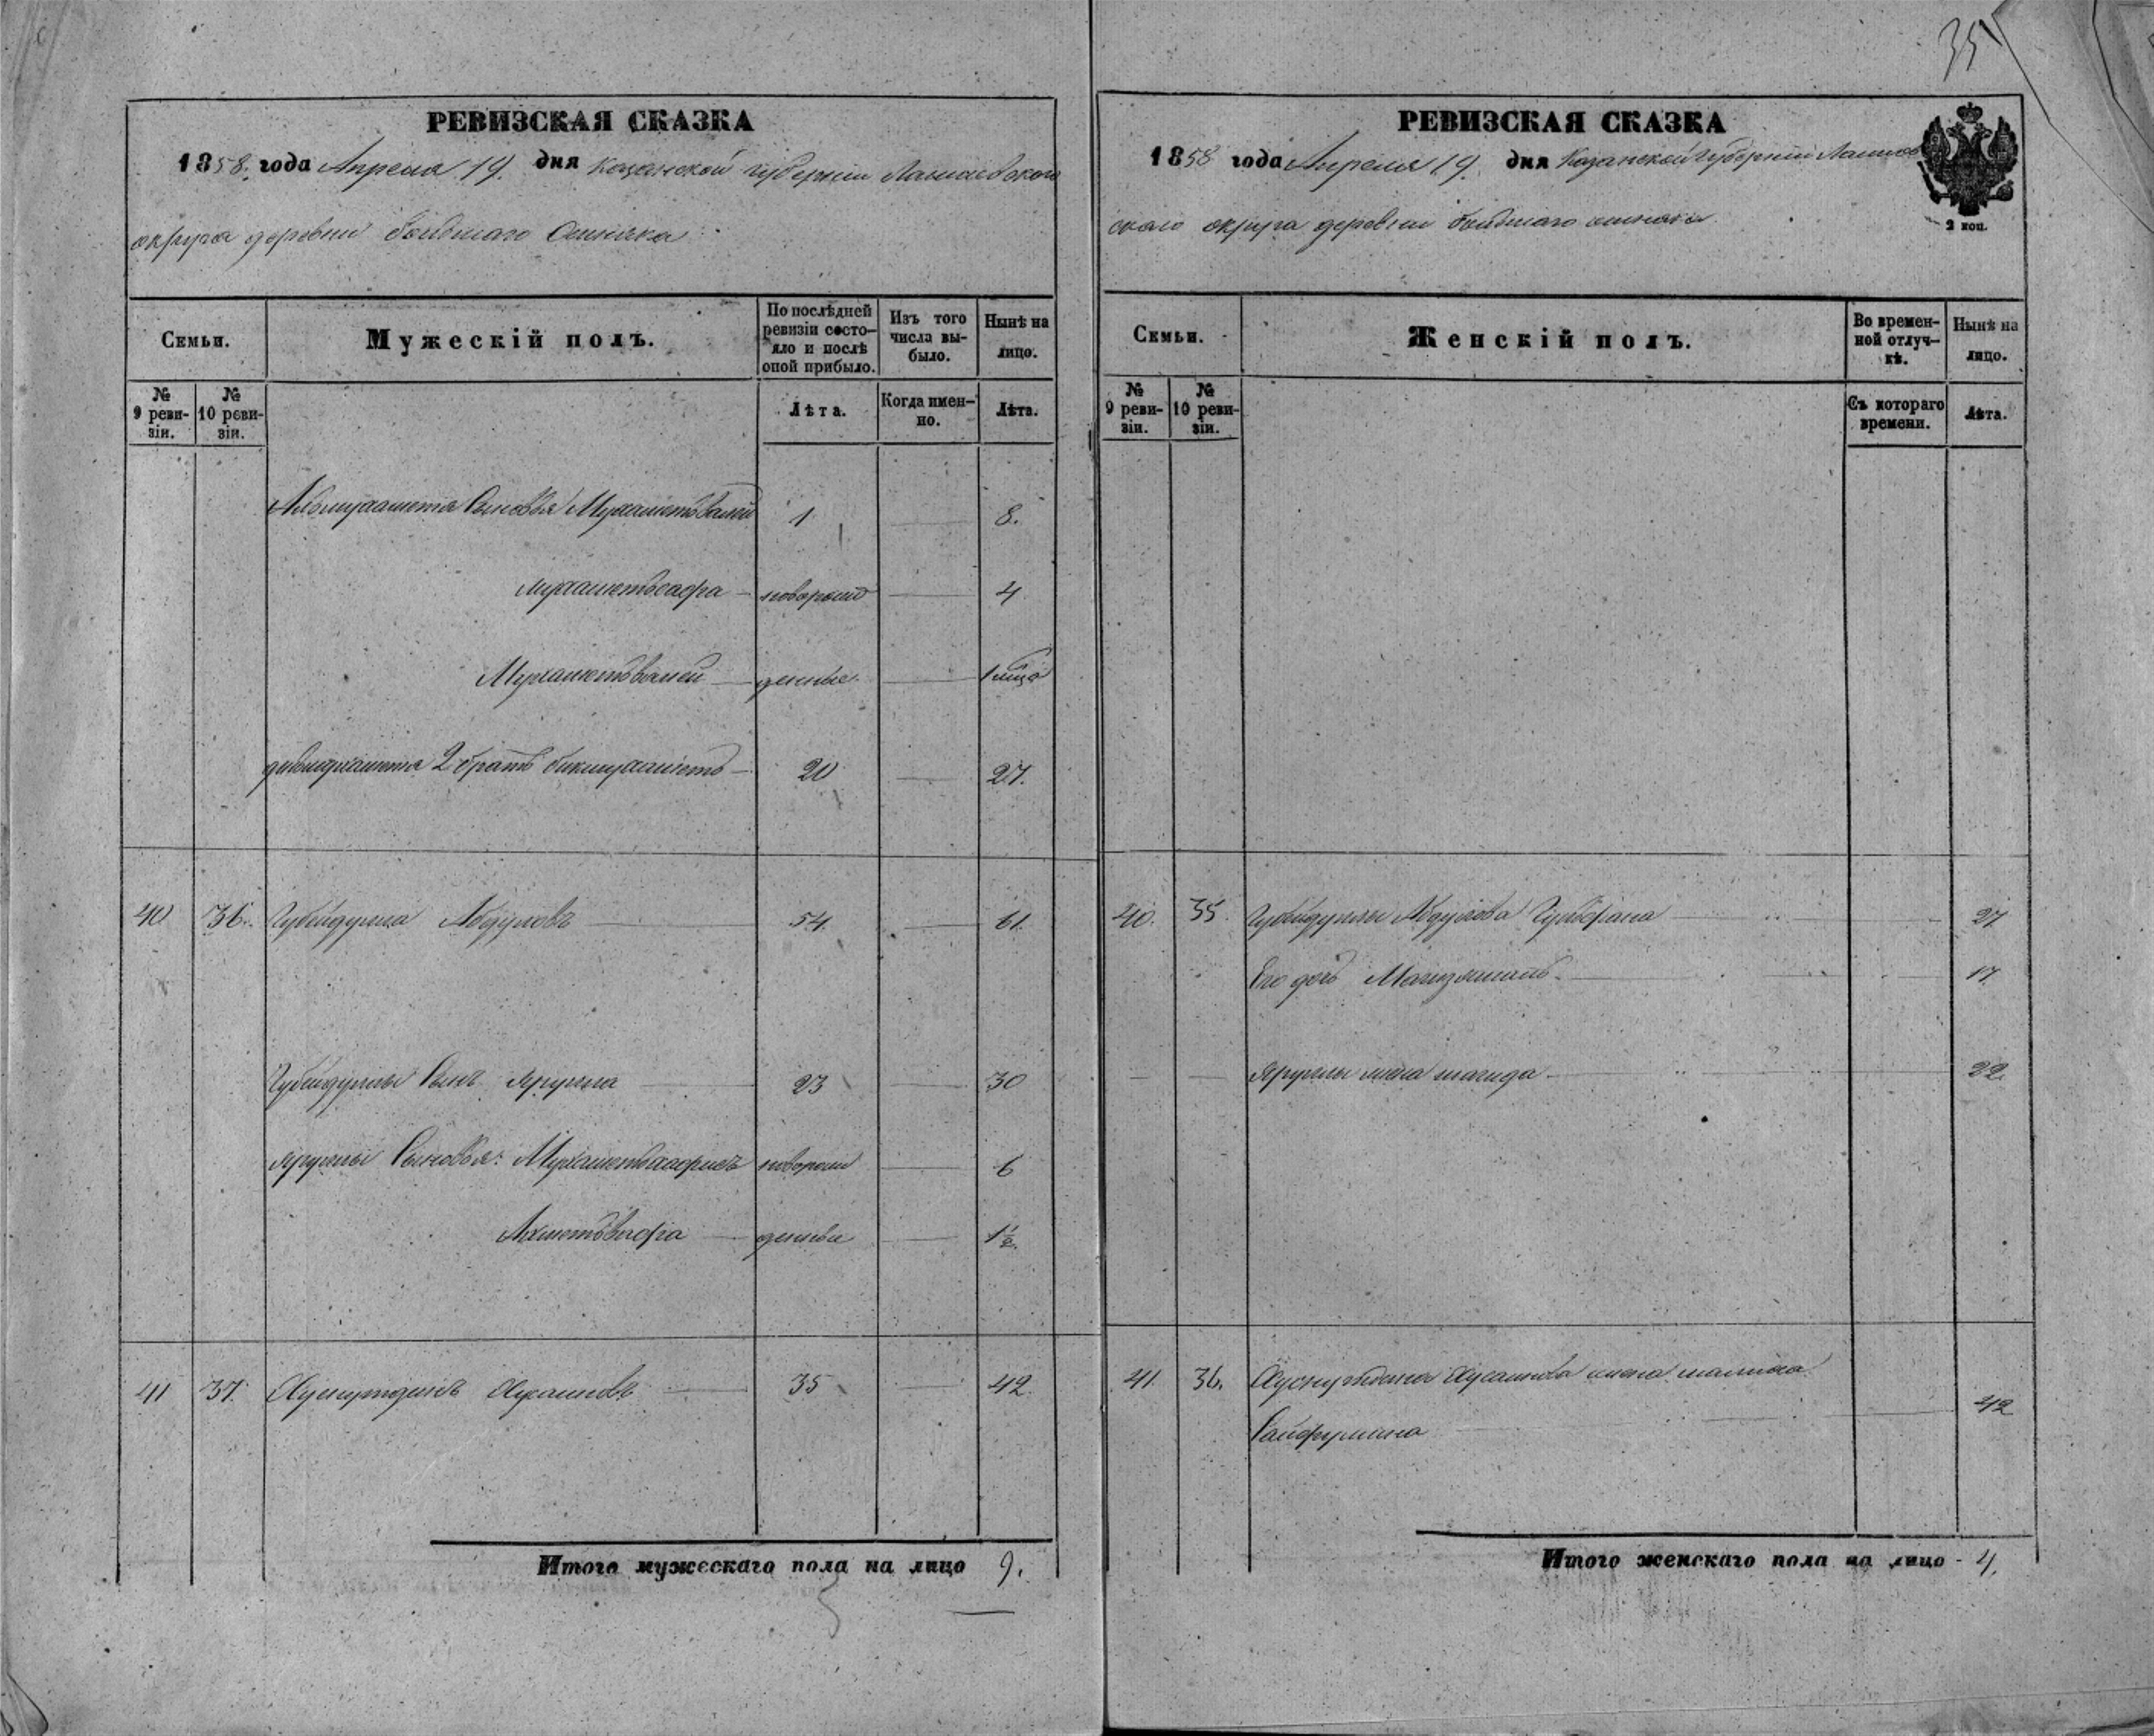 35
РЕВИЗСКАЯ СКАЗКА
1858 года Апреля 19. дня Казанской губернии Лаишевского
округа деревни
Семьи.
Мужескій полъ.
По послѣдней ревизіи состо-
яло и послѣ
оной прибыло.
Изъ того
числа вы-
было.
Нынѣ на
лицо.
№
9 реви-
зіи.
№
10 реви-
зіи.
Лѣта.
Когда имен-
но.
Лѣта.
Сыновья Мухаметвалей 1 8.
Мухаметсафа новорож 4
Мухаметвалей денные
2 братъ бикмухаметъ 20 27.
40 36. Губейдулла Абдуловъ 54. 61.
Губейдуллы Сынъ Ярулла 23 30
Яруллы Сыновья: новорож 6
Ахметвафа денные 1½.
41 37. Хуснутдинъ Хусаиновъ 35 42.
Итого мужескаго пола на лицо 9.
РЕВИЗСКАЯ СКАЗКА
1858 года Апреля 19. дня Казанской губернии Лаишев
ского округа деревни
2 коп.
Семьи.
Женскій полъ.
Во времен-
ной отлуч-
кѣ.
Нынѣ на
лицо.
№
9 реви-
зіи.
№
10 реви-
зіи.
Съ котораго
времени.
Лѣта.
40. 35. Губейдуллы Абдулова 27
Его дочь 17.
Яруллы жена 22.
41 36. Хуснутдина Хусаинова жена
Сайфуллина 42
Итого женскаго пола на лицо - 4.